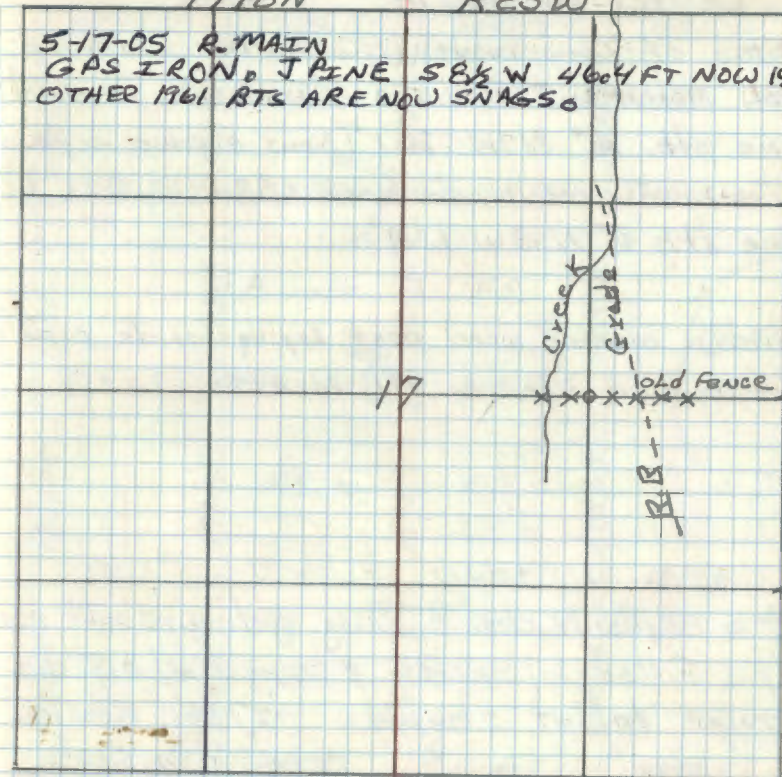 5-17-05 R. MAIN
GAS IRON. J PINE S 8½ W 46.4 FT NOW 19
OTHER 1961 BTS ARE NOW SNAGS.
Creek
Grade
17
old Fence
RR